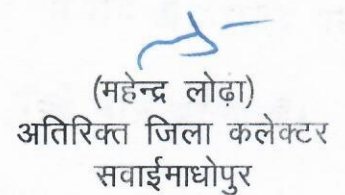 (महेन्द्र लोढ़ा)
अतिरिक्त जिला कलेक्टर
सवाईमाधोपुर